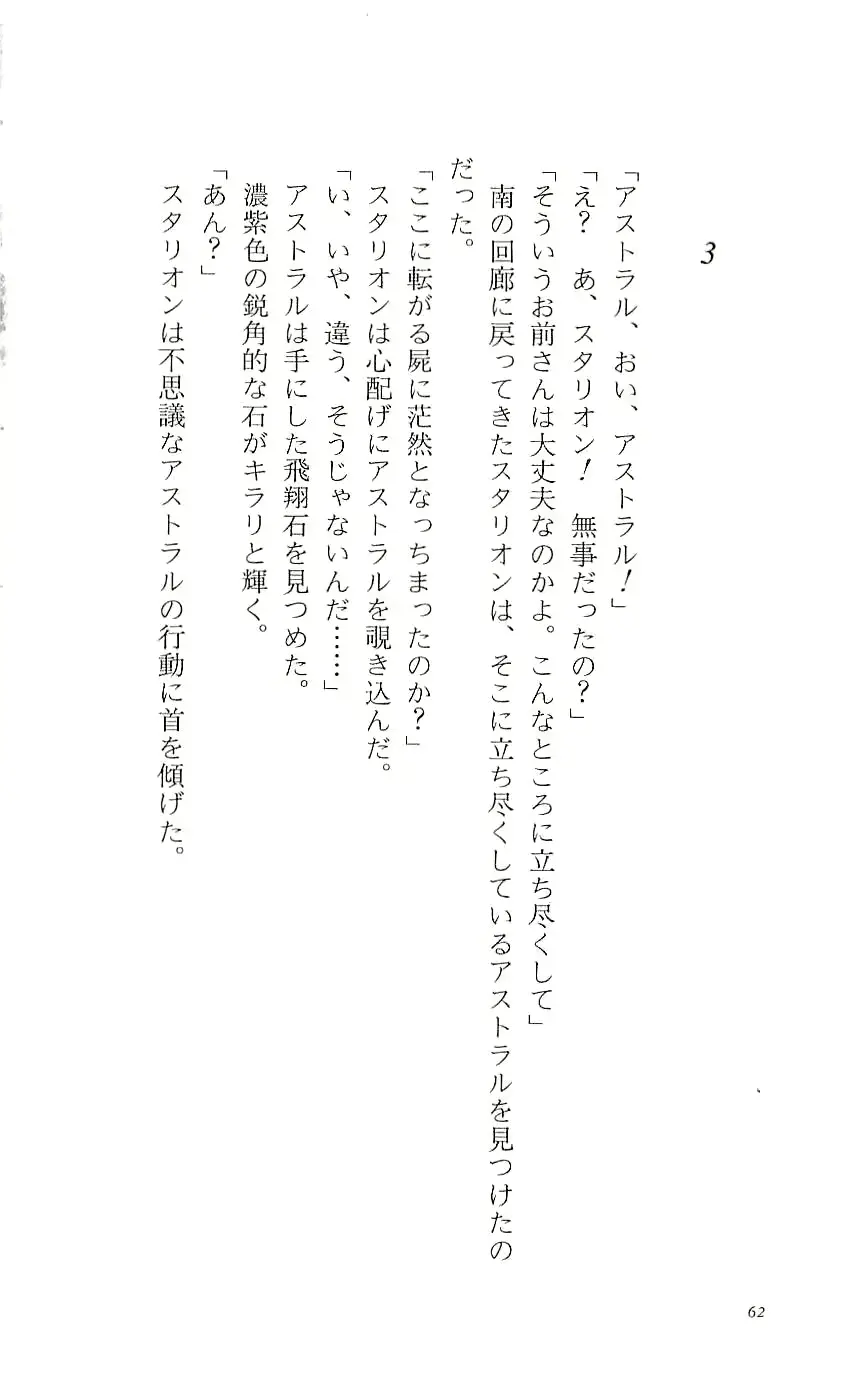 3
「アストラル、おい、アストラル！」
「え？　あ、スタリオン！　無事だったの？」
「そういうお前さんは大丈夫なのかよ。こんなところに立ち尽くして」
　南の回廊に戻ってきたスタリオンは、そこに立ち尽くしているアストラルを見つけたの
だった。
「ここに転がる屍に茫然となっちまったのか？」
　スタリオンは心配げにアストラルを覗き込んだ。
「い、いや、違う、そうじゃないんだ……」
　アストラルは手にした飛翔石を見つめた。
　濃紫色の鋭角的な石がキラリと輝く。
「あん？」
　スタリオンは不思議なアストラルの行動に首を傾げた。
62